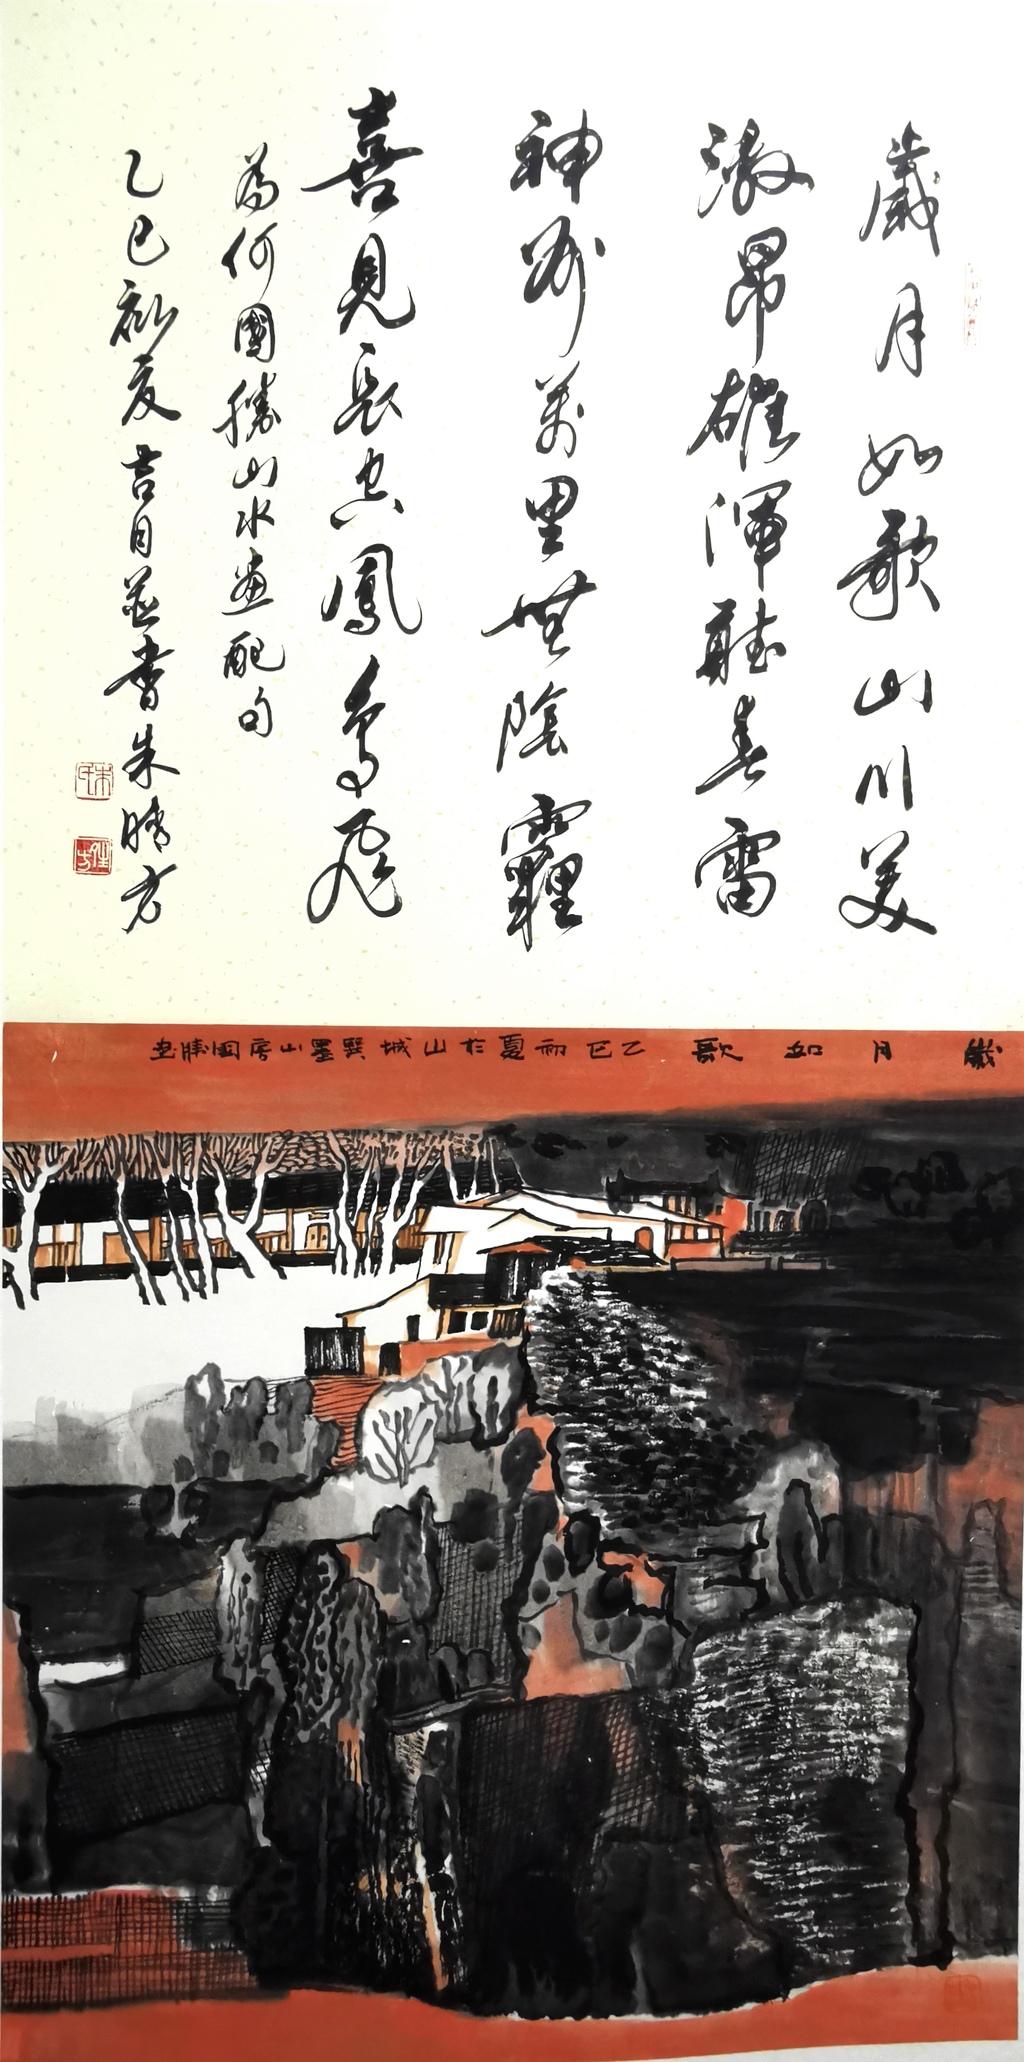 歲月如歌山川美
激昂雄渾聽春雷
神州萬里無陰霾
喜見長空鳳鳥飛
為何國勝山水畫配句
乙巳初夏吉月並書朱晴方
歲月如歌 乙巳初夏於山城巽墨山房國勝畫